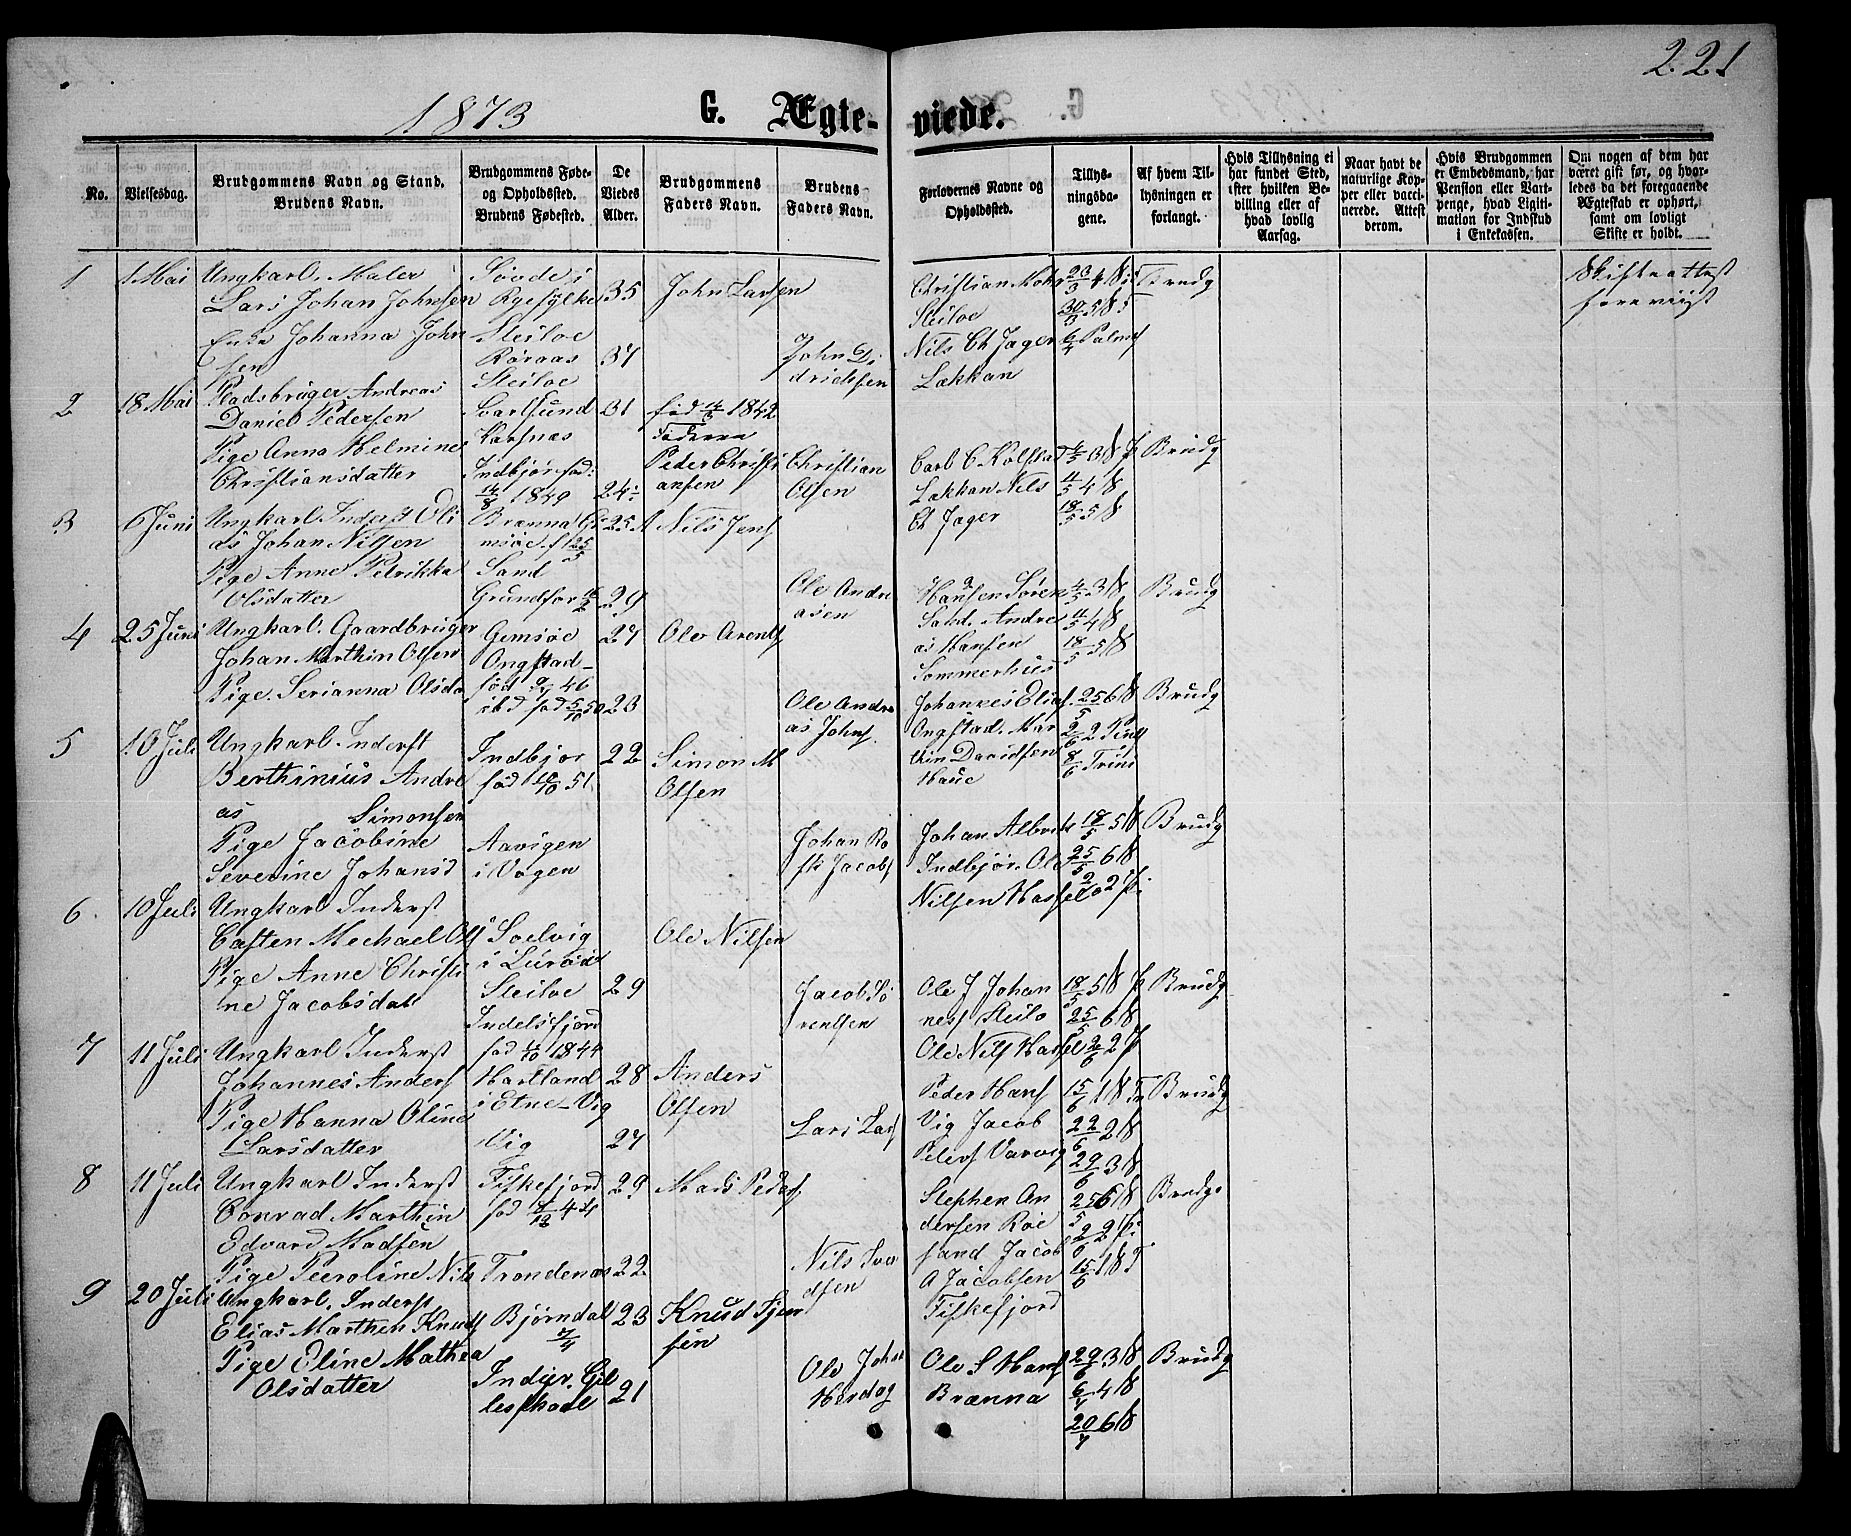 221
1873
G. Ægteviede.
No.
Vielsesdag.
Brudgommens Navn og Stand.
Brudens Navn.
Brudgommens Føde-
og Opholdssted.
Brudens Fødested.
De
Viedes
Alder.
Brudgommens
Faders Navn.
Brudens
Faders Navn.
Forlovernes Navne og
Opholdssted.
Tillys-
ningsda-
gene.
Af hvem Til-
lysningen er
forlangt.
Hvis Tillysning ei
har fundet Sted,
efter hvilken Be-
villing eller af
hvad lovlig
Aarsag.
Naar havt de
naturlige Kop-
per eller vacci-
nerede. Attest
derom.
Hvis Brudgommen
er Embedsmand, har
Pension eller Vart-
penge, hvad Ligiti-
mation for Indskud
i Enkekassen.
Om nogen af dem har
været gift før, og hvor-
ledes da det foregaaende
Ægteskab er ophørt,
samt om lovligt
Skifte er holdt.
1
1 Mai
Ungkarl. Maler
Lars Johan Johnsen
Enke Johanna John
sen
Sövde i
Ryefylke
Steiloe
Röraas
Steiloe
35
37
John Larsen
John Di
drichsen
Christian Mohr
Steiloe
Nils Ch Jager
Lækkan
23/3 4 S i F
30/3 5 S i F
6/4 Palms
Brudg
Skifteattest
foreviist
2
18 Mai
Pladsbruger Andreas
Daniel Pedersen
Pige Anna Helmine
Christiansdatter
Carlsund
Karsnæs
Indbjör fød:
14/8 1849
31
24
fød 14/3 1842
Faderen
Peder Christi
ansen
Christian
Olsen
Carl C Kolstad
Lækkan Nils
Ch Jager
4/5 3 S p
11/5 4 S
18/5 5 S
Brudg
3
6 Juni
Ungkarl. Inderst Eli
as Johan Nilsen
Pige Anne Petrikka
Olsdatter
Brænna Gi
msöe
Sand
Grundfor
25
29
Nils Jens
Ole Andre
asen
Hansen Sören
Sand. Andre
as Hansen
Sommerhus
4/5 3 S
11/5 4 S
18/5 5 S
Brudg
4
25 Juni
Ungkarl. Gaardbruger
Johan Marthin Olsen
Pige. Serianna Olsda
Gemsöe
Ongstad-
fød 9/9 46
ibd fød 5/10 50
27
23
Ole Arents
Ole Andre
as Johns.
Johannes Elias
Ongstad. Mar
thin Davidsen
Haue
25/5 6 S
2/6 2 Pins
8/6 Trini
Brudg
5
10 Juli
Ungkarl. Inderst
Berthinius Andre
as Simonsen
Pige Jacobine
Severine Johansd
Indbjør
fød 10/10 51
Aavigen
i Vogen
22
Simon M
Olsen
Johan Ro
sk Jacobs
Johan Albrik
Indbjør. Ole
Nilsen Hassel
18/5 5 S
25/5 6 S
2/6 2 Pi
Brudg
6.
10 Juli
Ungkarl Inderst
Casten Mechael Ols
Pige Anne Christi
ne Jacobsdat
Soelvig
i Luröd
Steiloe
Indelsfjord
29
Ole Nilsen
Jacob Sö
rensen
Ole J Johan
nes Steilo
Ole Nils Hassel
18/5 5 S p
25/5 6 S
2/6 2 P
Brudg
7
11 Juli
Ungkarl Inderst
Johannes Anders
Pige Hanna Oline
Larsdatter
fød 4/10 1844
Hartland
i Etne-Vig
Vig
28
27
Anders
Olsen
Lars Lars
Peder Hans
Vig Jacob
Peters Varvig
15/6 1 S Tr
22/6 2 S
29/6 3 S
Brudg
8
11 Juli
Ungkarl Inderst
Conrad Marthin
Edvard Madsen
Pige Peeroline Nils
Fiskefjord
fød 4/12 44
Trondenæs
29
22
Mads Peders
Nils Sve
dsen
Stephen An
dersen Röe
sand Jacob
A Jacobsen
Fiskefjord
25/5 6 S
2/6 2 Pi
15/6 1 S T
Brudg
9
20 Juli
Ungkarl. Inderst
Elias Marthen Knuds
Pige Eline Mathea
Olsdatter
Bjørndal
7/4
Indgr. Gil
leskaal
23
21
Knud Tjer
sen
Ole Johns
Herdag
Ole S Hans
Brænna
29/6 3 S
6/7 4 S
20/7 6 S
Brudg